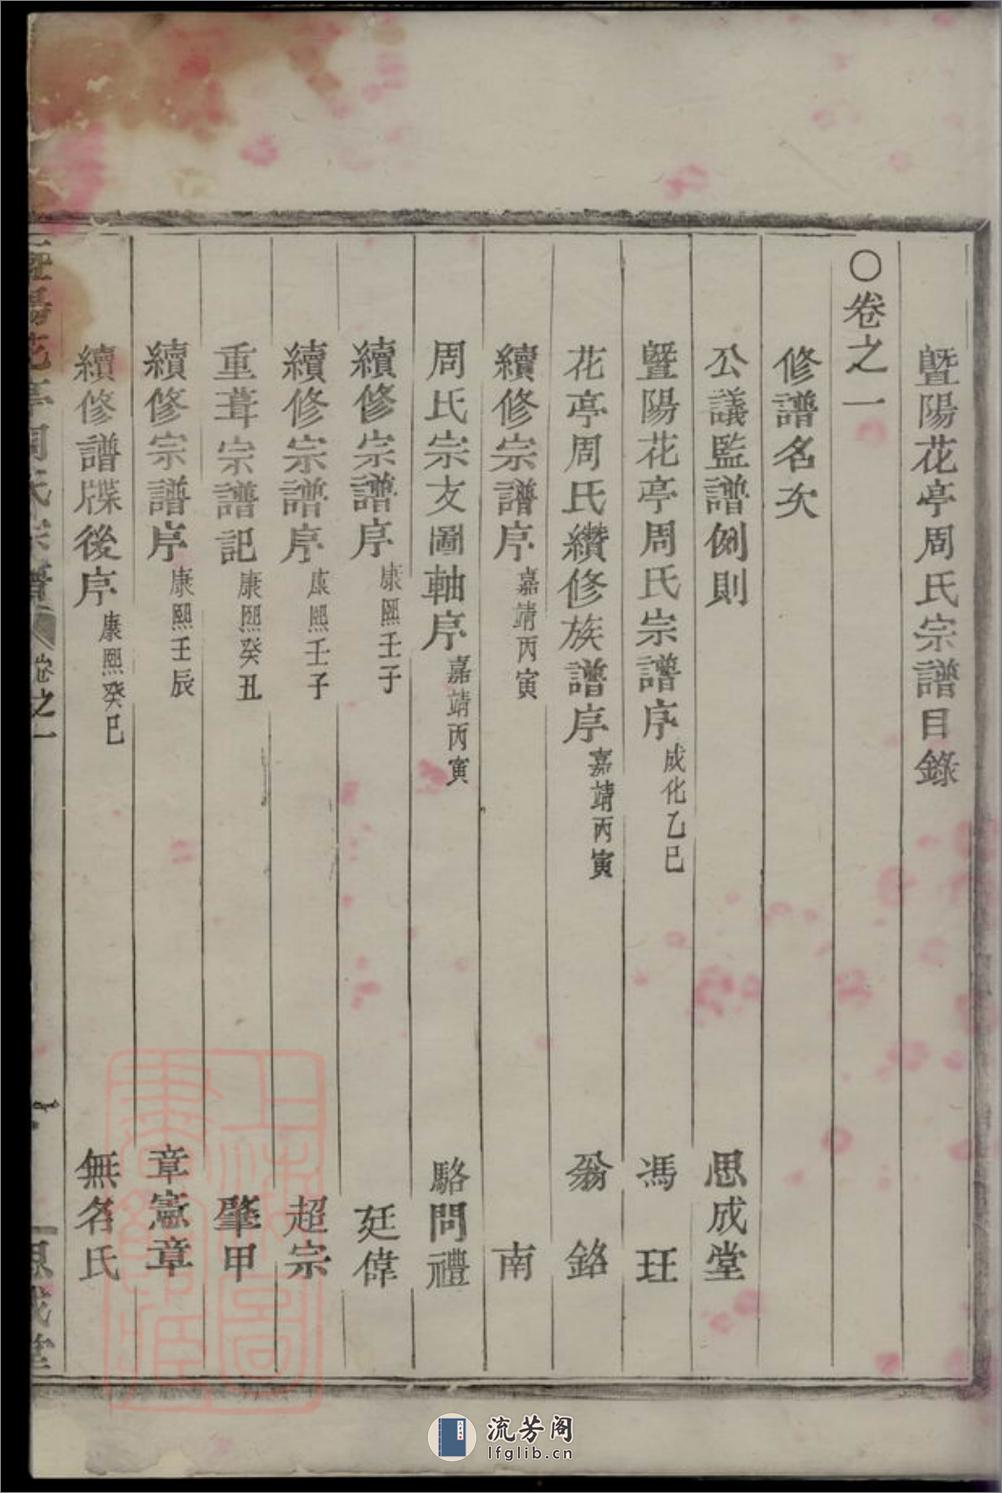 暨陽花亭周氏宗譜目錄
○卷之一
修譜名次
公議監譜例則 思成堂
暨陽花亭周氏宗譜序 成化乙巳 馮玨
花亭周氏纘修族譜序 嘉靖丙寅 翁銘
續修宗譜序 嘉靖丙寅 南
周氏宗支圖軸序 嘉靖丙寅 駱問禮
續修宗譜序 康熙壬子 廷偉
續修宗譜序 康熙壬子 超宗
重葺宗譜記 康熙癸丑 肇甲
續修宗譜序 康熙壬辰 章憲章
續修譜牒後序 康熙癸巳 無名氏
暨陽花亭周氏宗譜 卷之一 思成堂
流芳阁
lfglib.cn